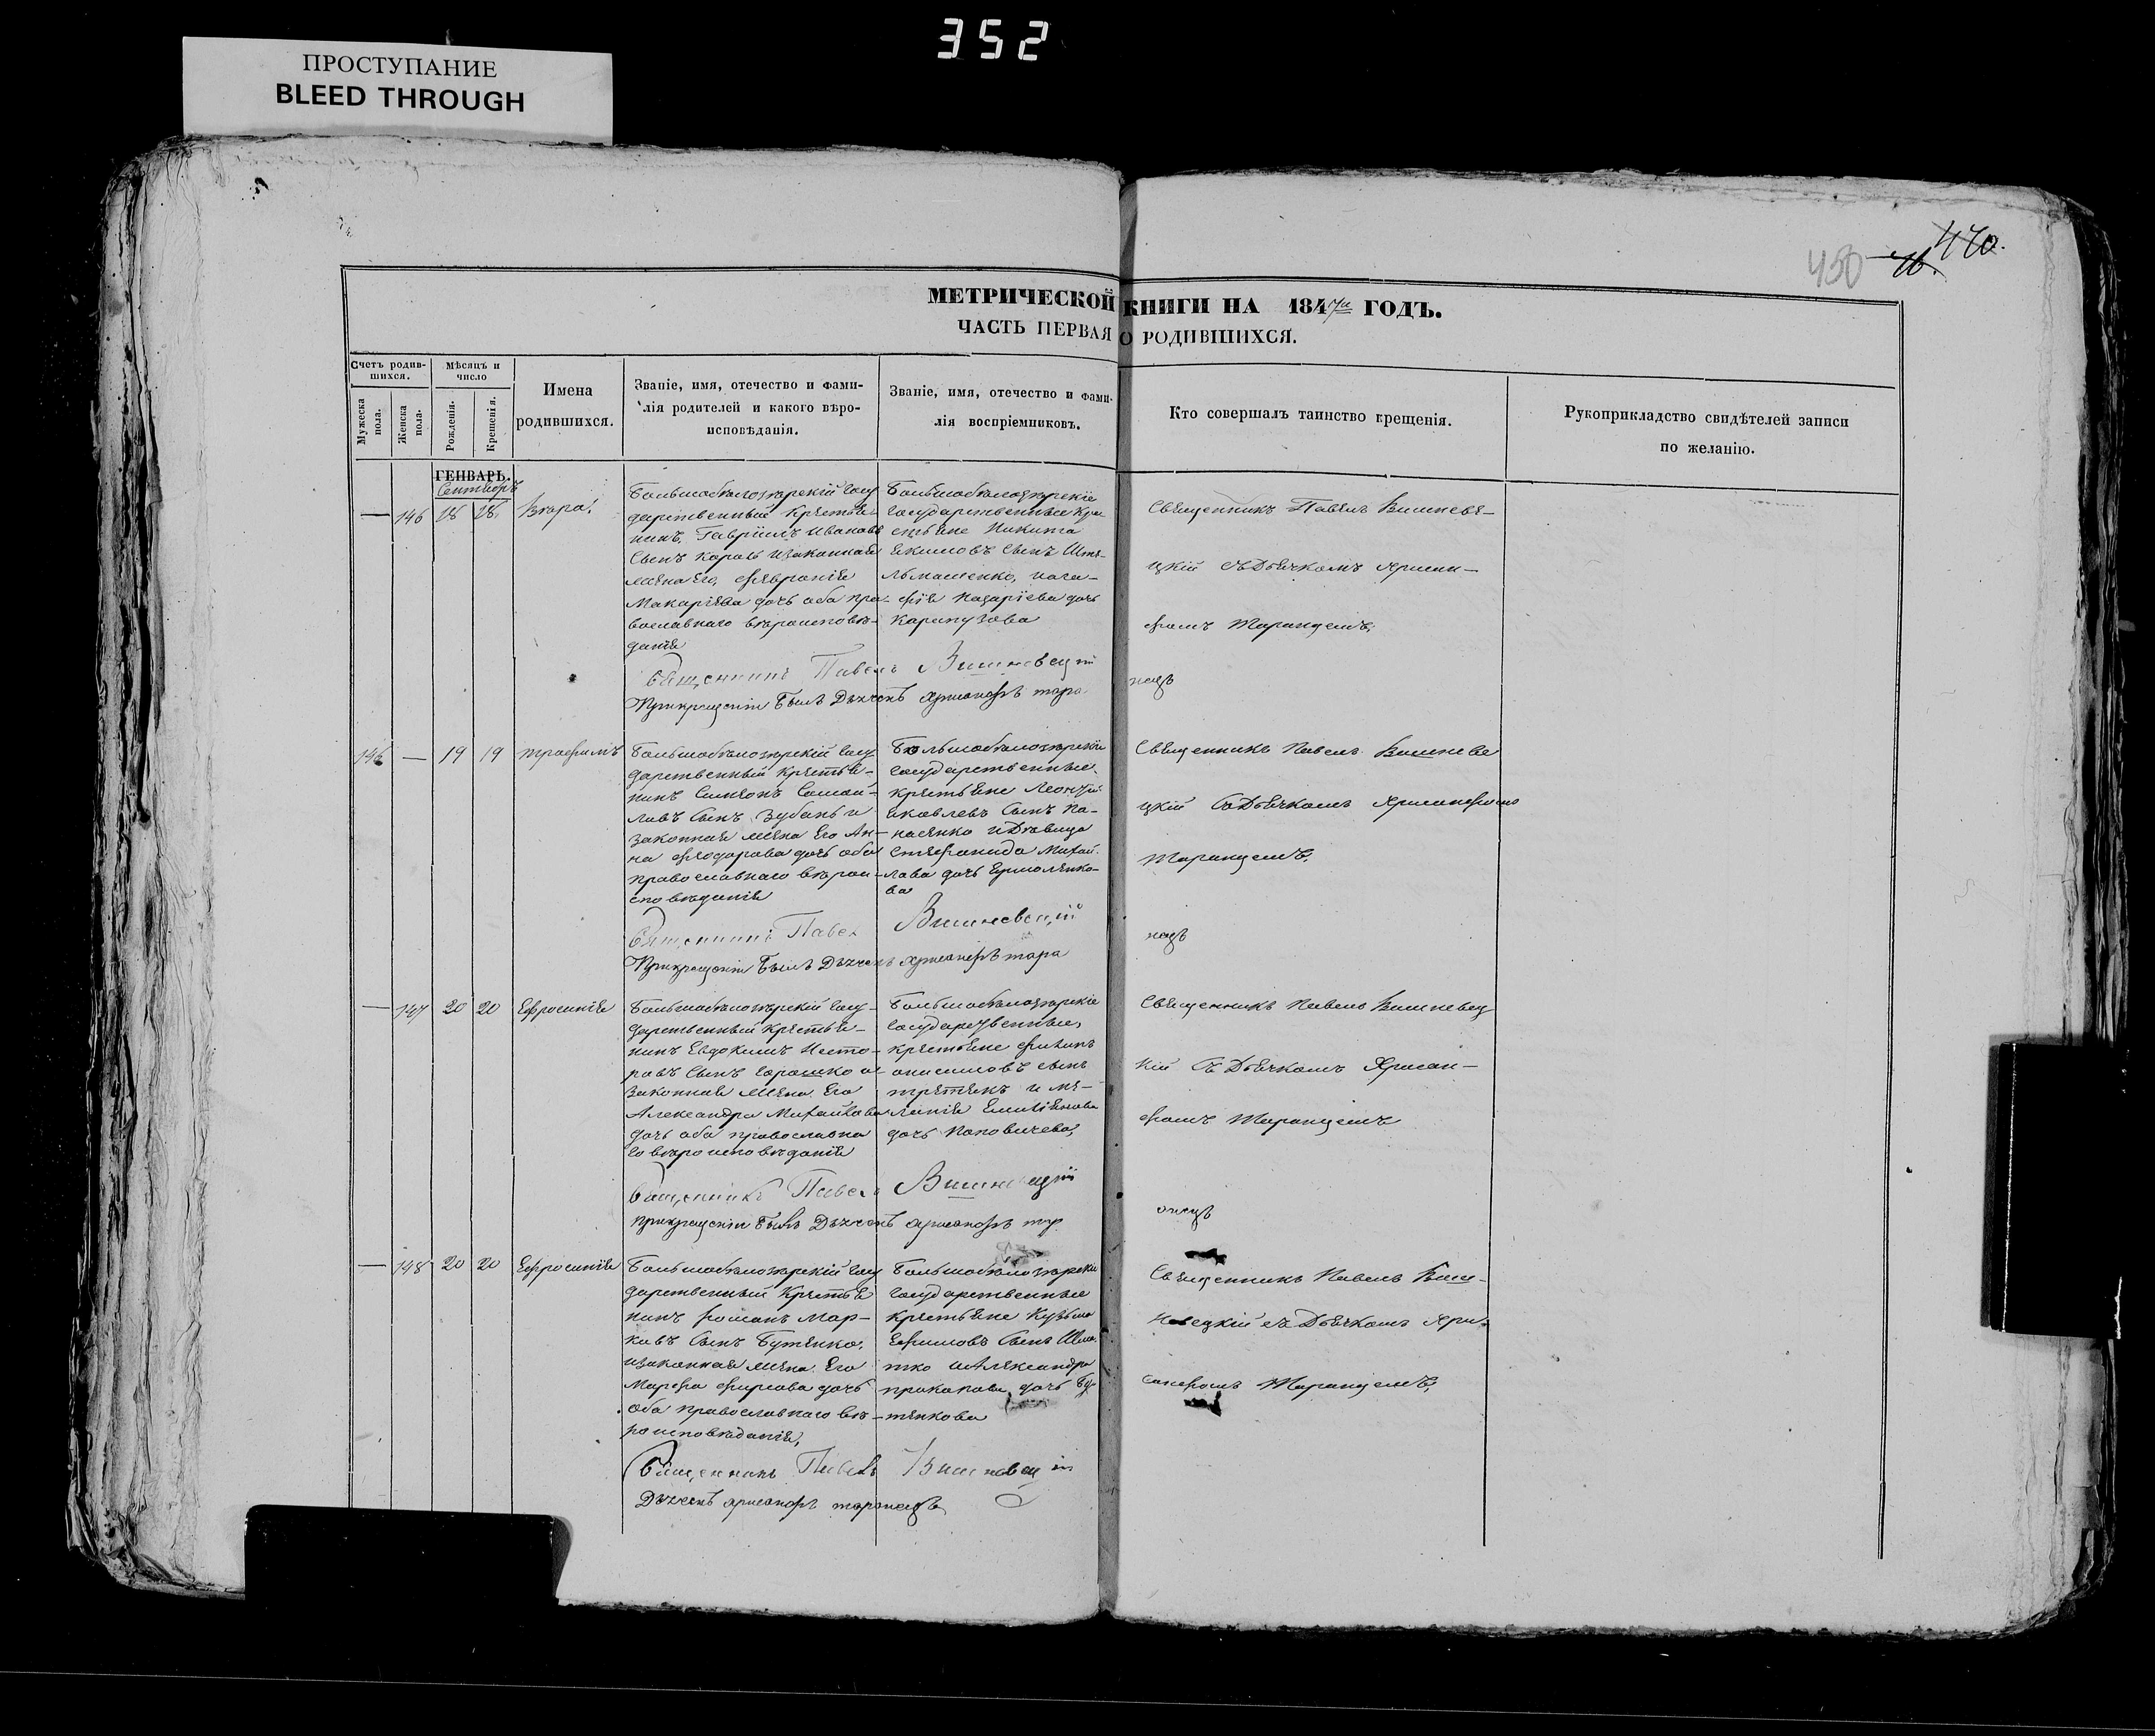 352
ПРОСТУПАНИЕ
BLEED THROUGH
450
470.
МЕТРИЧЕСКОЙ КНИГИ НА 184 ГОДЪ.
ЧАСТЬ ПЕРВАЯ О РОДИВШИХСЯ.
Счетъ родив-
шихся.
Мужеска пола.
Женска пола.
Мѣсяцъ и
число
Рожденія.
Крещенія.
Имена
родившихся.
Званіе, имя, отечество и фами-
лія родителей и какого вѣро-
исповѣданія.
Званіе, имя, отечество и фами-
лія воспріемниковъ.
Кто совершалъ таинство крещенія.
Рукоприкладство свидѣтелей записи
по желанію.
ГЕНВАРЬ.
Сентябрь
— 146 18 18 Вѣра
Большобѣлозѣрскій госу
дарственный крестья-
нинъ, Гавріилъ Ивановъ
сынъ изаконная
жена его, Февронія
Макаріева дочь оба пра-
вославнаго вѣроисповѣ-
данія
Большобѣлозѣрскіе
государственные кре
стьяне Никита
Екимовъ сынъ
дочь
Священникъ Павелъ Вишневе-
цкій съ Дьячкомъ
Таранцемъ,
Священникъ Павелъ Вишневецкій
При крещеніи былъ Дьячекъ тара
нецъ
146 — 19 19 Трофимъ
Большобѣлозѣрскій госу
дарственный крестья-
нинъ Симеонъ Самой-
ловъ сынъ Зубань и
законная жена его Ан-
на Феодорова дочь оба
православнаго вѣрои-
сповѣданія
Большобѣлозѣрскіе
государственные
крестьяне Леонтій
Яковлевъ сынъ Па-
насенко и Дѣвица
Стефанида Михай-
лова дочь Ермоленко-
ва
Священникъ Павелъ Вишневе
цкій съ Дьячкомъ
Таранцемъ,
Священникъ Павелъ Вишневецкій
При крещеніи былъ Дьячекъ тара
нецъ
— 147 20 20 Ефросинія
Большобѣлозѣрскій госу-
дарственный крестья-
нинъ Евдокимъ Несто-
ровъ сынъ и
законная жена его
Александра Михайлова
дочь оба православна
го вѣроисповѣданія
Большобѣлозѣрскіе
государственные
крестьяне Филипъ
Онисимовъ сынъ
третякъ и Ме-
ланія Емиліянова
дочь Поповичева,
Священникъ Павелъ Вишневец
кій съ Дьячкомъ
Таранцемъ
Священникъ Павелъ Вишневецкій
При крещеніи былъ Дьячекъ
— 148 20 20 Ефросинія
Большобѣлозѣрскій госу
дарственный крестья
нинъ Романъ Мар-
ковъ сынъ Бутенко,
изаконная жена его
Марфа Фирсова дочь
оба православнаго вѣ-
роисповѣданія,
Большобѣлозѣрскіе
государственные
крестьяне Кузьма
Ефимовъ сынъ Шма-
тко и Александра
Прокопова дочь Бу
тенкова
Священникъ Павелъ Виш-
невецкій съ Дьячкомъ
Таранцемъ,
Священникъ Павелъ Вишневецкій
Дьячекъ таранецъ